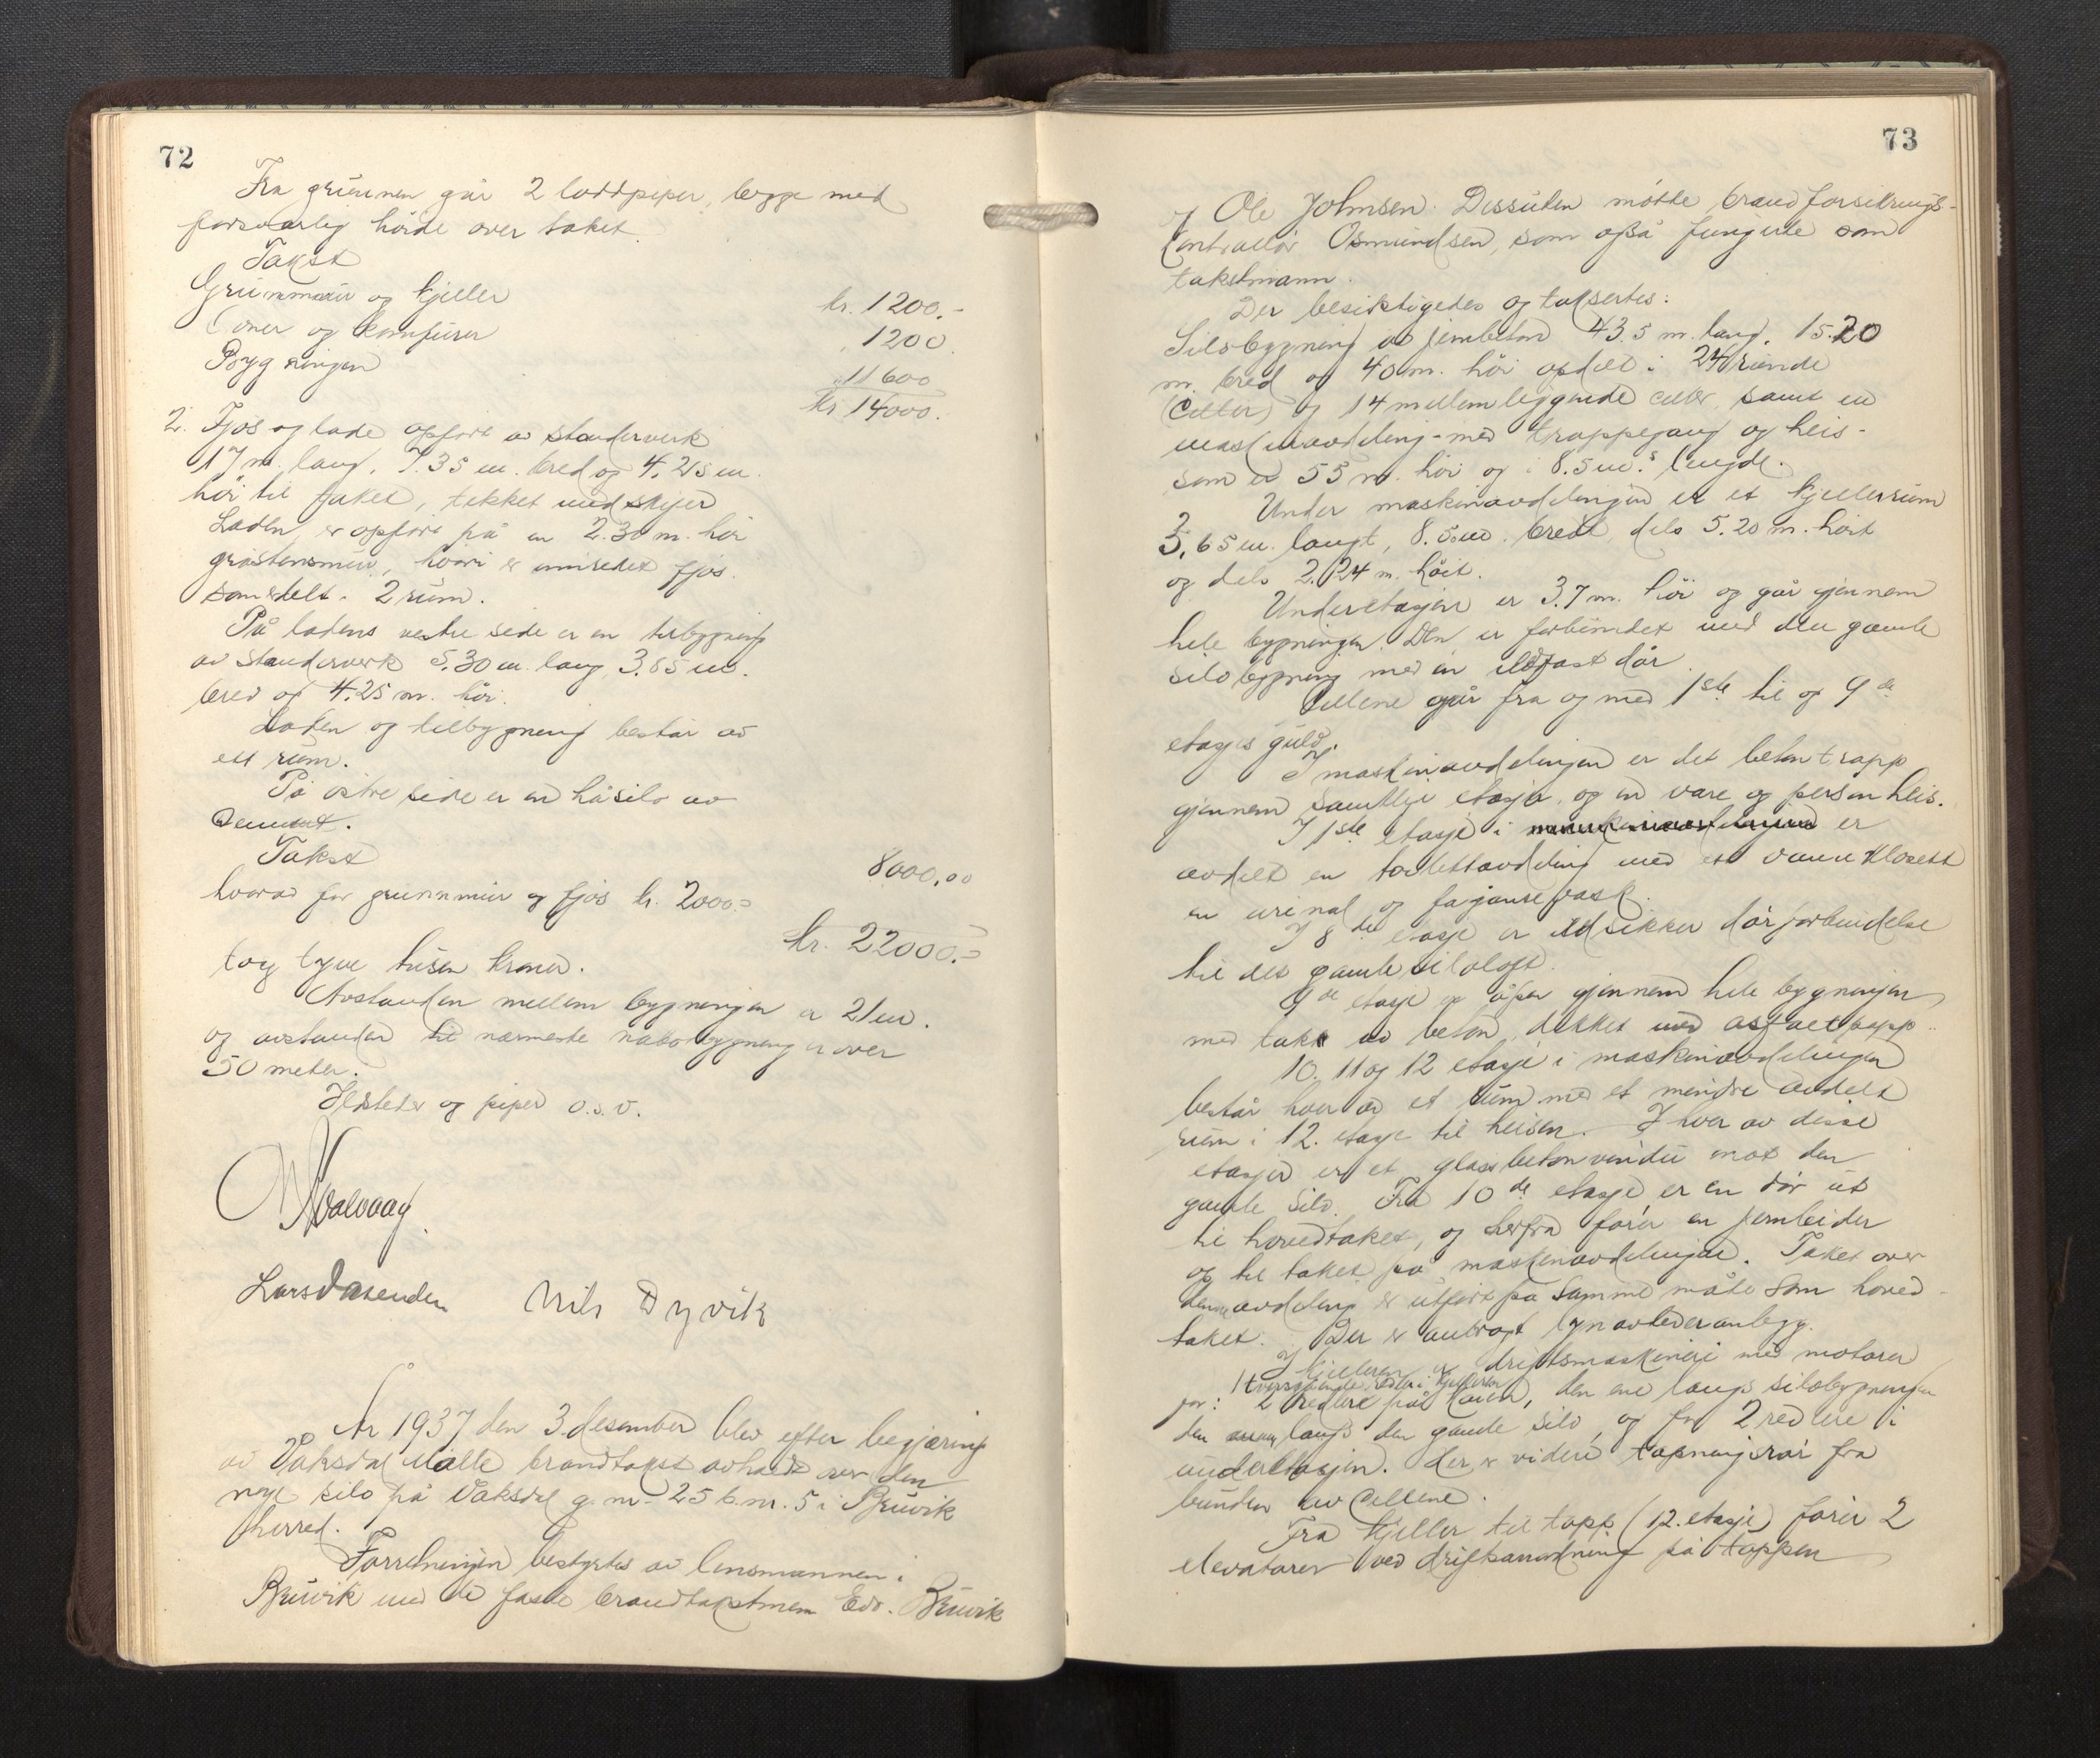 72
Fra grunnen går 2 loddpiper, begge med
forsvarlig høide over taket.
Takst
Grunnmur og kjeller kr. 1200.-
Ovner og komfurer 1200
Bygningen 11600
kr 14000.
2. Fjøs og lade opført av standerverk
17 m. lang, 7.35 m. bred og 4.25 m.
høi til taket, tekket med skifer
Laden er opført på en 2.30 m. høi
gråstensmur, hvori er innredet fjøs
som er delt i 2 rum.
På ladens vestre side er en tilbygning
av standerverk 5.30 m. lang 3.85 m.
bred og 4.25 m. høi.
Laden og tilbygning består av
ett rum.
På østre side er en håsilo av
sement.
Takst 8000.00
hvorav for grunnmur og fjøs kr. 2000.-
kr. 22000.-
tog tyve tusen kroner.
Avstanden mellem bygningen er 21 m.
og avstanden til nærmeste nabobygning er over
50 meter.
Ildsteder og piper o.s.v.
Lars Dasenden Nils Dyvik
År 1937 den 3. desember blev efter begjæring
av Vaksdal Mølle brandtakst avholdt over den
nye silo på Vaksdal g. nr. 25 b. nr. 5 i Bruvik
herred.
Forretningen bestyrtes av lensmannen i
Bruvik med de faste brandtakstmenn Edv. Bruvik
73
og Ole Johnsen. Dessuten møtte brandforsikrings-
kontrollør Osmundsen, som også fungerte som
takstmann.
Der besiktigedes og taksertes:
Silobygning av jernbeton 43.5 m. lang, 15.20
m. bred og 40 m. høi opdelt i 24 runde
(celler) og 14 mellemliggende celler samt en
maskinavdeling - med trappegang og heis -
som er 55 m. høi og i 8.5 m.s lengde.
Under maskinavdelingen er et kjellerrum
5.65 m. langt, 8.5 m. bredt, dels 5.20 m. høit
og dels 2.24 m. høit.
Underetasjen er 3.7 m. høi og går gjennem
hele bygningen. Den er forbundet med den gamle
silobygning med en ildfast dør.
Cellene går fra og med 1ste til og 9de
etasjes gulv.
I maskinavdelingen er det betontrapp
gjennem samtlige etasjer, og en vare og personheis.
I 1ste etasje i er
avdelt en toilettavdeling med et vannklosett
en urinal og fajansevask.
I 8de etasje er ildsikker dørforbindelse
til det gamle siloloft.
9de etasje er åpen gjennem hele bygningen,
med takk av beton, dekket med asfaltpapp.
10. 11 og 12 etasje i maskinavdelingen
består hver av et rum med et mindre avdelt
rum i 12. etasje til heisen. I hver av disse
etasjer er et glassbetonvindu mot den
gamle silo. Fra 10de etasje er en dør ut
til hovedtaket, og herfra fører en jernleider
op til taket på maskinavdelingen. Taket over
denne avdeling er utført på samme måte som hoved-
taket. Der er anbragt lynavlederanlegg.
I kjelleren er driftsmaskineri med motorer
1 tversgående redler i kjelleren
for: 2 redlere på kaien, den ene langs silobygningen
den annen langs den gamle silo, og for 2 redlere i
underetasjen. Der er videre tapningsrør fra
bunden av cellene.
Fra kjeller til topp (12. etasje) fører 2
elevatorer ved driftsanordning på toppen